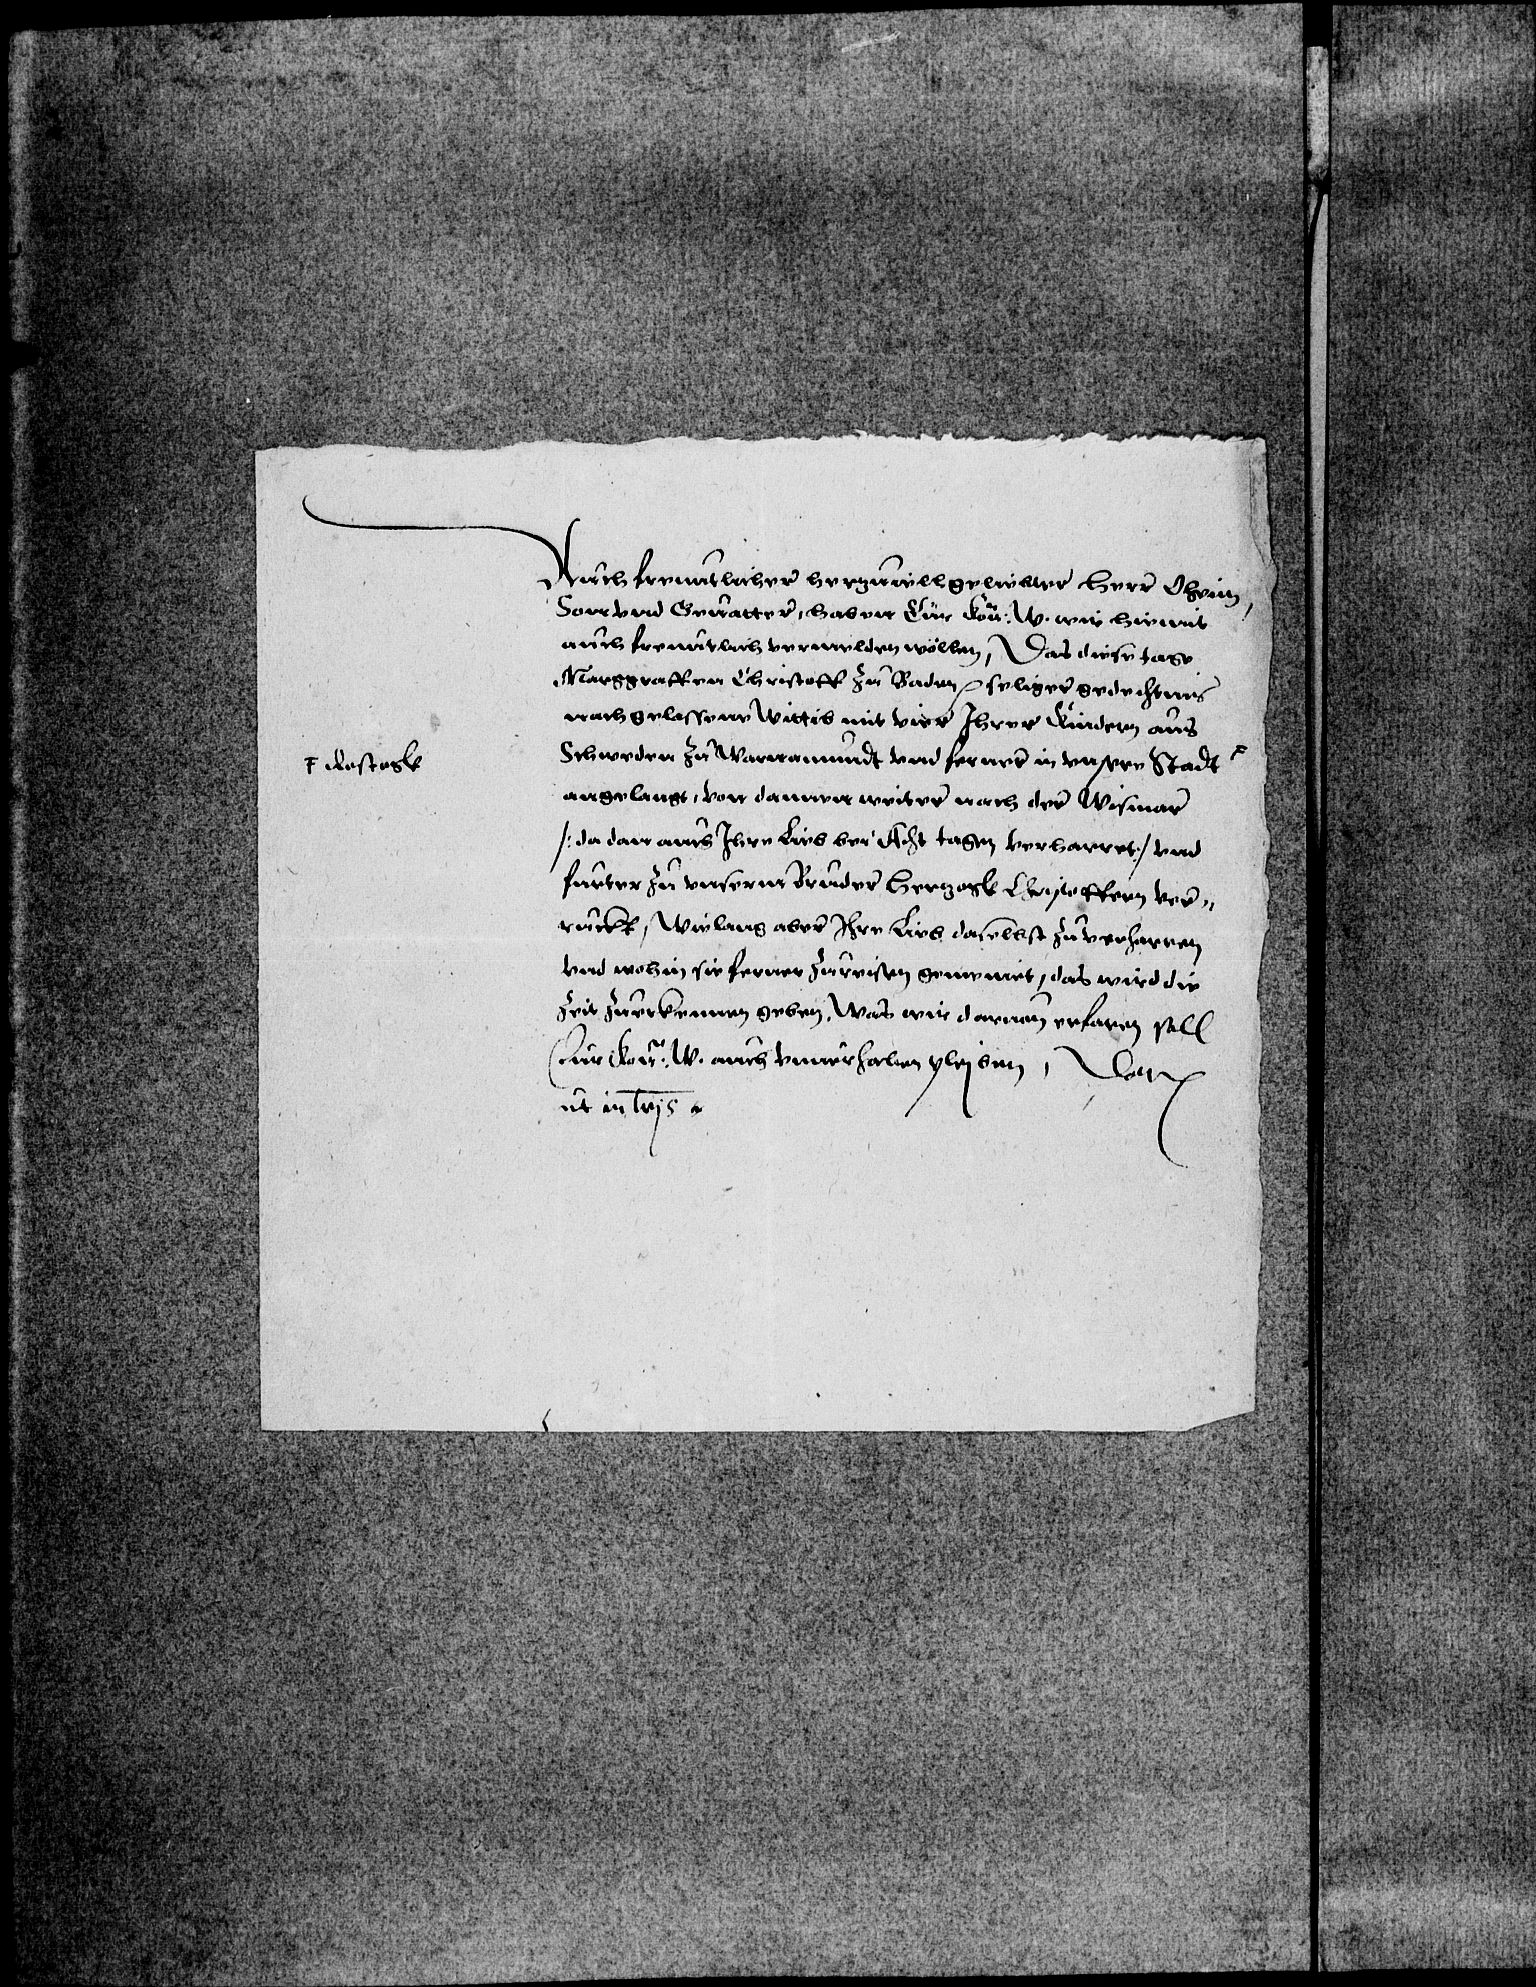 Auch freuntlicher herzuuillgeliebter Herr Oheim,
Son vnd Geuatter, haben Eur Kön: W. wir hiemit
auch freuntlich vermelden wöllen, Das diese tage
Marggraffen Christoff zu Baden seliger gedechtnus
nachgelassene Wittib mit vier Ihrer Kindern aus
Schweden zu Warnamundt vnd ferner in vnsere Stadt F
F Rostogk
angelangt, von dannen weiter nach der Wismar
/: da dan auch Ihre Lieb bei Acht tagen verharret :/ vnd
furter zu vnserm Bruder Hertzogk Christoffern ver„
ruckt, Wielang aber Ihre Lieb daselbst zuuerharren
vnd wohin sie ferner zureisen gemeint, das wird die
Zeit zuerkennen geben, Was wir daruon erfaren soll
Eur Kön: W. auch vnuerhalten pleiben, Dat
ut in lrijs